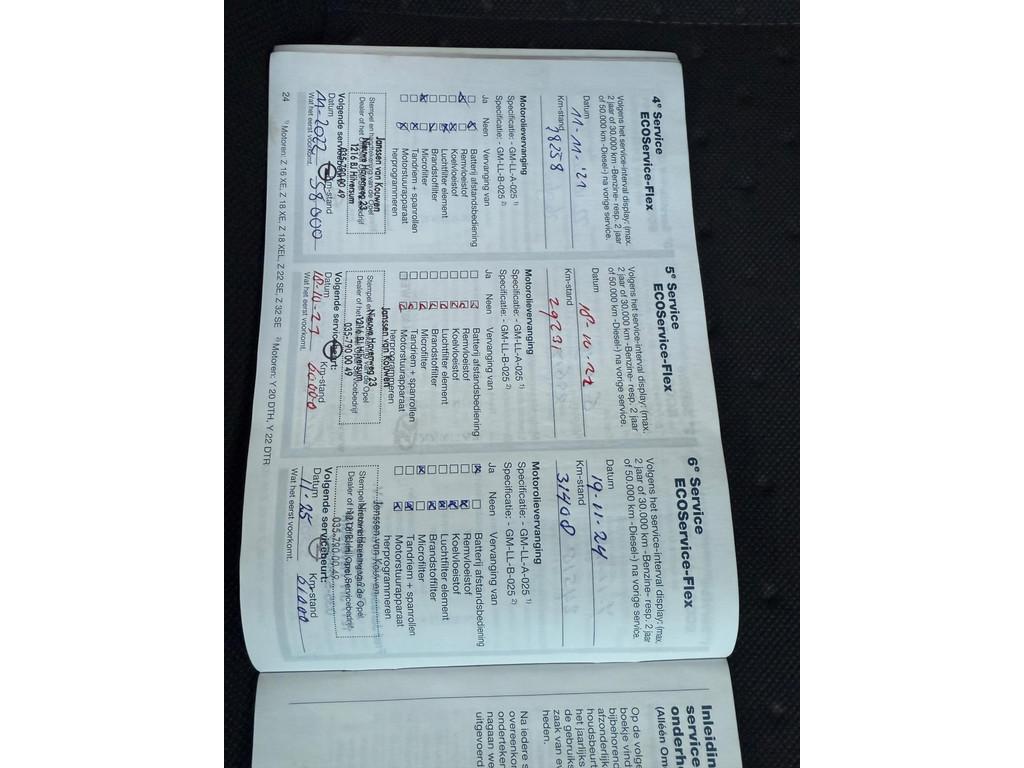 4e Service
ECOService-Flex
Volgens het service-interval display: (max.
2 jaar of 30.000 km -Benzine- resp. 2 jaar
of 50.000 km -Diesel-) na vorige service.
Datum
11-11-'21
Km-stand
28258
Motorolievervanging
Specificatie: - GM-LL-A-025 1)
Specificatie: - GM-LL-B-025 2)
Ja Neen Vervanging van
Batterij afstandsbediening
Remvloeistof
Koelvloeistof
Luchtfilter element
Brandstoffilter
Microfilter
Tandriem + spanrollen
Motorstuurapparaat
herprogrammeren
Janssen van Kouwen
Stempel en handtekening van de Opel
Nieuwe Havenweg 23
Dealer of het
1216 BJ Hilversum
035-790 00 49
Volgende servicebeurt:
Datum Km-stand
11-2022 58000
Wat het eerst voorkomt.
24
5e Service
ECOService-Flex
Volgens het service-interval display: (max.
2 jaar of 30.000 km -Benzine- resp. 2 jaar
of 50.000 km -Diesel-) na vorige service.
Datum
18-10-22
Km-stand
29231
Motorolievervanging
Specificatie: - GM-LL-A-025 1)
Specificatie: - GM-LL-B-025 2)
Ja Neen Vervanging van
Batterij afstandsbediening
Remvloeistof
Koelvloeistof
Luchtfilter element
Brandstoffilter
Microfilter
Tandriem + spanrollen
Motorstuurapparaat
herprogrammeren
Janssen van Kouwen
Stempel en van de Opel
Nieuwe Havenweg 23
Dealer of het
1216 BJ Hilversum
035-790 00 49
Volgende servicebeurt:
Datum Km-stand
18-10-23 60000
Wat het eerst voorkomt.
6e Service
ECOService-Flex
Volgens het service-interval display: (max.
2 jaar of 30.000 km -Benzine- resp. 2 jaar
of 50.000 km -Diesel-) na vorige service.
Datum
19-11-24
Km-stand
31408
Motorolievervanging
Specificatie: - GM-LL-A-025 1)
Specificatie: - GM-LL-B-025 2)
Ja Neen Vervanging van
Batterij afstandsbediening
Remvloeistof
Koelvloeistof
Luchtfilter element
Brandstoffilter
Microfilter
Tandriem + spanrollen
Motorstuurapparaat
herprogrammeren
Janssen van Kouwen
Stempel de Opel
Dealer of het Servicebedrijf
035-790 00 49
Volgende servicebeurt:
Datum Km-stand
11-25 61000
Wat het eerst voorkomt.
1) Motoren: Z 16 XE, Z 18 XE, Z 18 XEL, Z 22 SE, Z 32 SE 2) Motoren: Y 20 DTH, Y 22 DTR
Inleidin
service
onderh
(Alléén Om
Op de volge
boekje vind
bijbehorend
afzonderlijk
houdsbeurt
het jaarlijks
de gebruiks
zaak van e
heden.
Na iedere s
overeenkor
onderteker
nagaan we
uitgevoerd